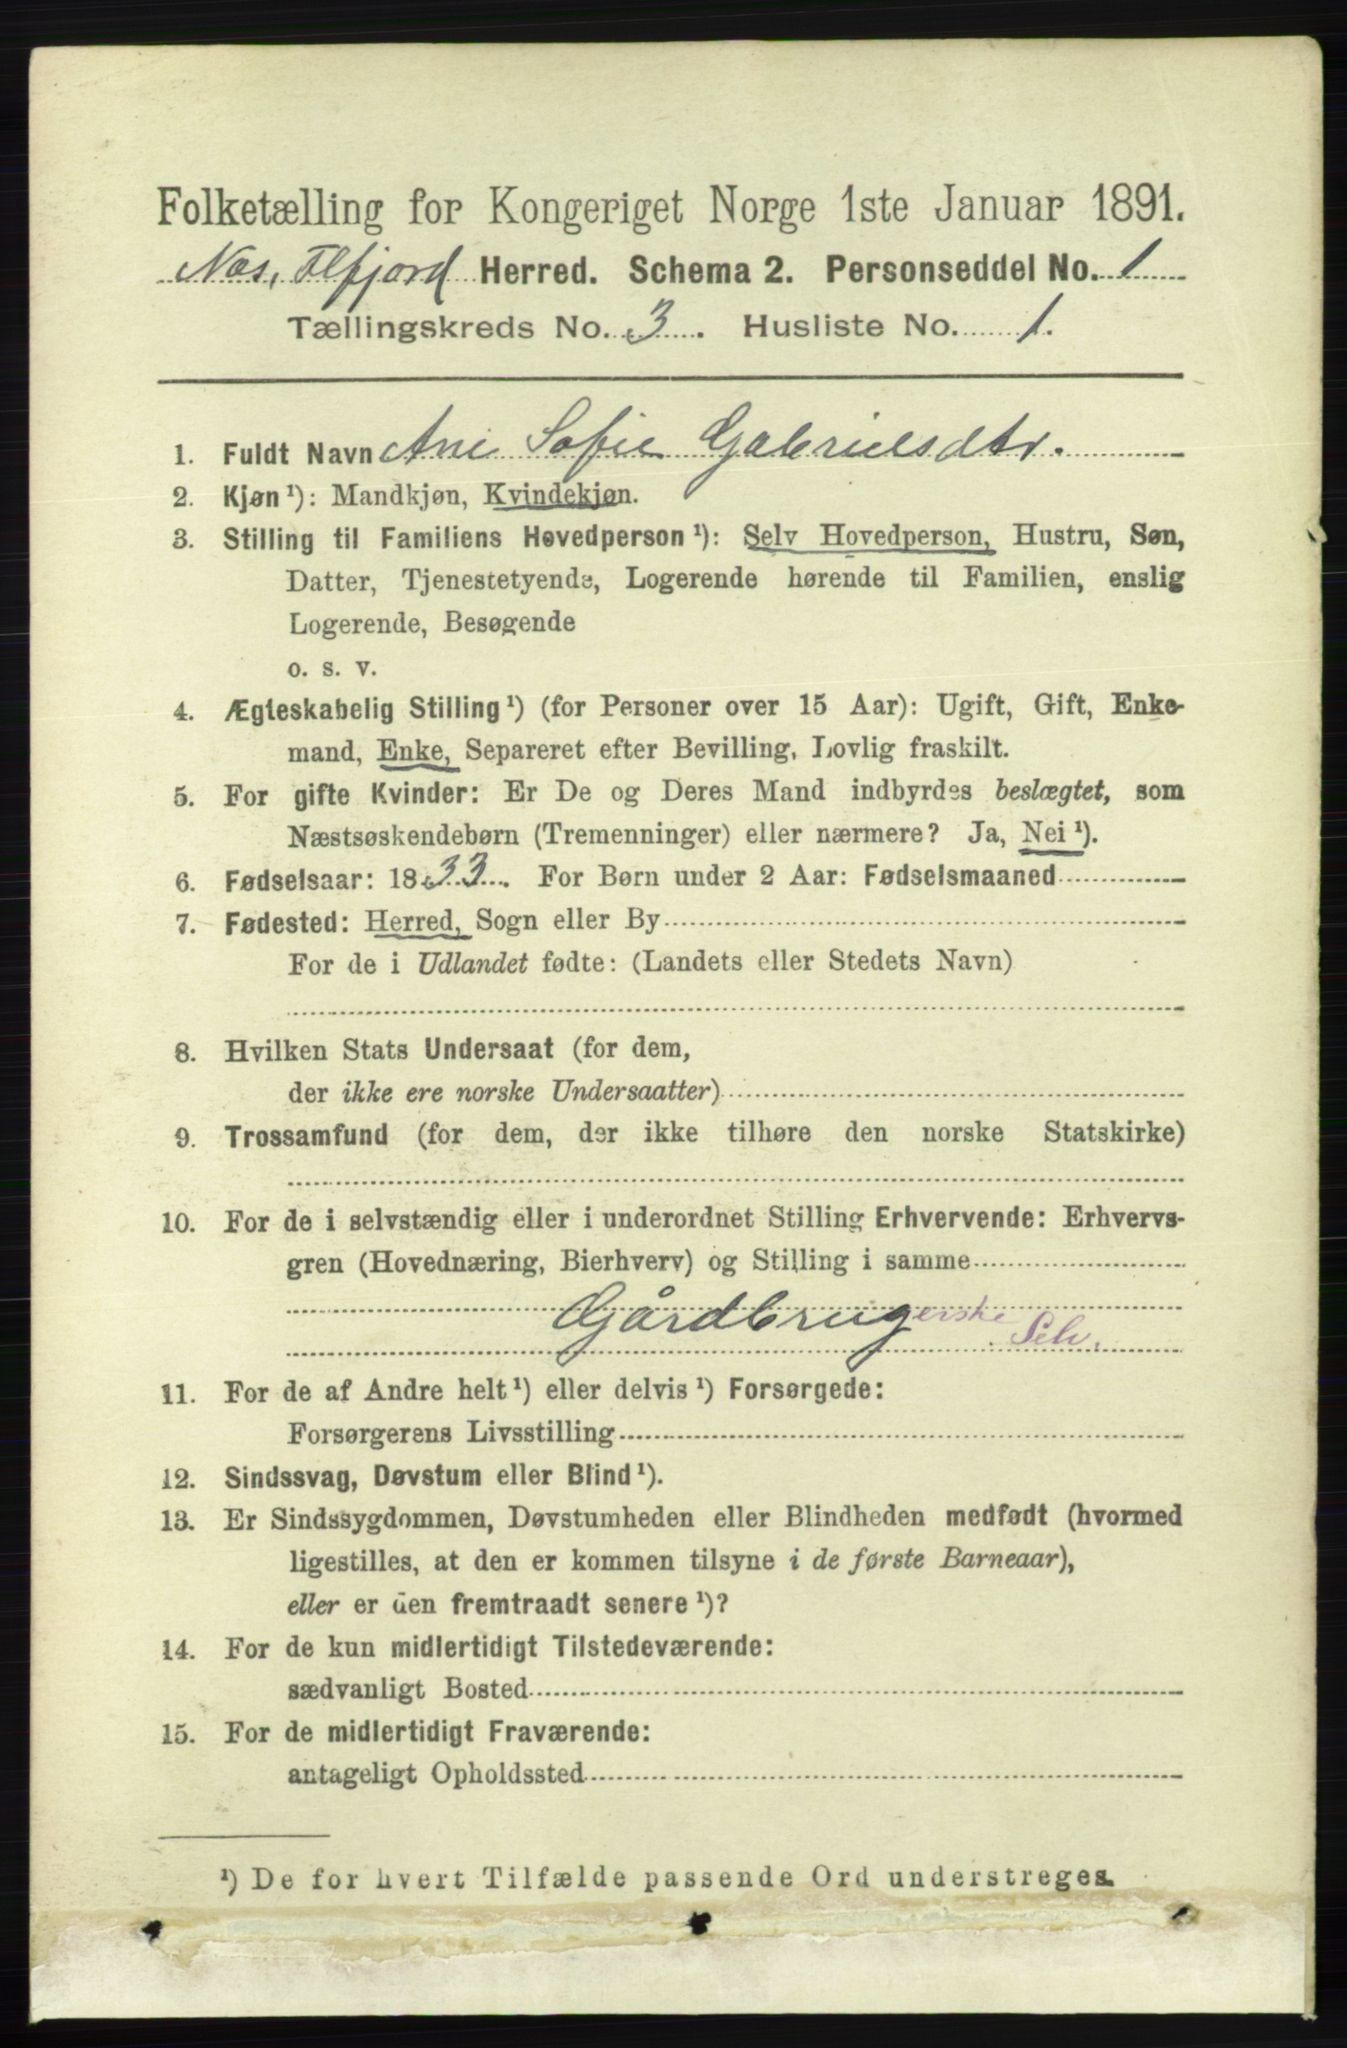 Folketælling for Kongeriget Norge 1ste Januar 1891.
Næs, Flfjord Herred. Schema 2. Personseddel No. 1
Tællingskreds No. 3. Husliste No. 1.
1. Fuldt Navn Ane Sofie Gabrielsdtr.
2. Kjøn¹): Mandkjøn, Kvindekjøn.
3. Stilling til Familiens Hovedperson¹): Selv Hovedperson, Hustru, Søn,
Datter, Tjenestetyende, Logerende hørende til Familien, enslig
Logerende, Besøgende
o. s. v.
4. Ægteskabelig Stilling¹) (for Personer over 15 Aar): Ugift, Gift, Enke-
mand, Enke, Separeret efter Bevilling, Lovlig fraskilt.
5. For gifte Kvinder: Er De og Deres Mand indbyrdes beslægtet, som
Næstsøskendebørn (Tremenninger) eller nærmere? Ja, Nei¹).
6. Fødselsaar: 1833. For Børn under 2 Aar: Fødselsmaaned
7. Fødested: Herred, Sogn eller By
For de i Udlandet fødte: (Landets eller Stedets Navn)
8. Hvilken Stats Undersaat (for dem,
der ikke ere norske Undersaatter)
9. Trossamfund (for dem, der ikke tilhøre den norske Statskirke)
10. For de i selvstændig eller i underordnet Stilling Erhvervende: Erhvervs-
gren (Hovednæring, Bierhverv) og Stilling i samme
Gårdbrugerske
Selv.
11. For de af Andre helt¹) eller delvis¹) Forsørgede:
Forsørgerens Livsstilling
12. Sindssvag, Døvstum eller Blind¹).
13. Er Sindssygdommen, Døvstumheden eller Blindheden medfødt (hvormed
ligestilles, at den er kommen tilsyne i de første Barneaar),
eller er den fremtraadt senere¹)?
14. For de kun midlertidigt Tilstedeværende:
sædvanligt Bosted
15. For de midlertidigt Fraværende:
antageligt Opholdssted
¹) De for hvert Tilfælde passende Ord understreges.